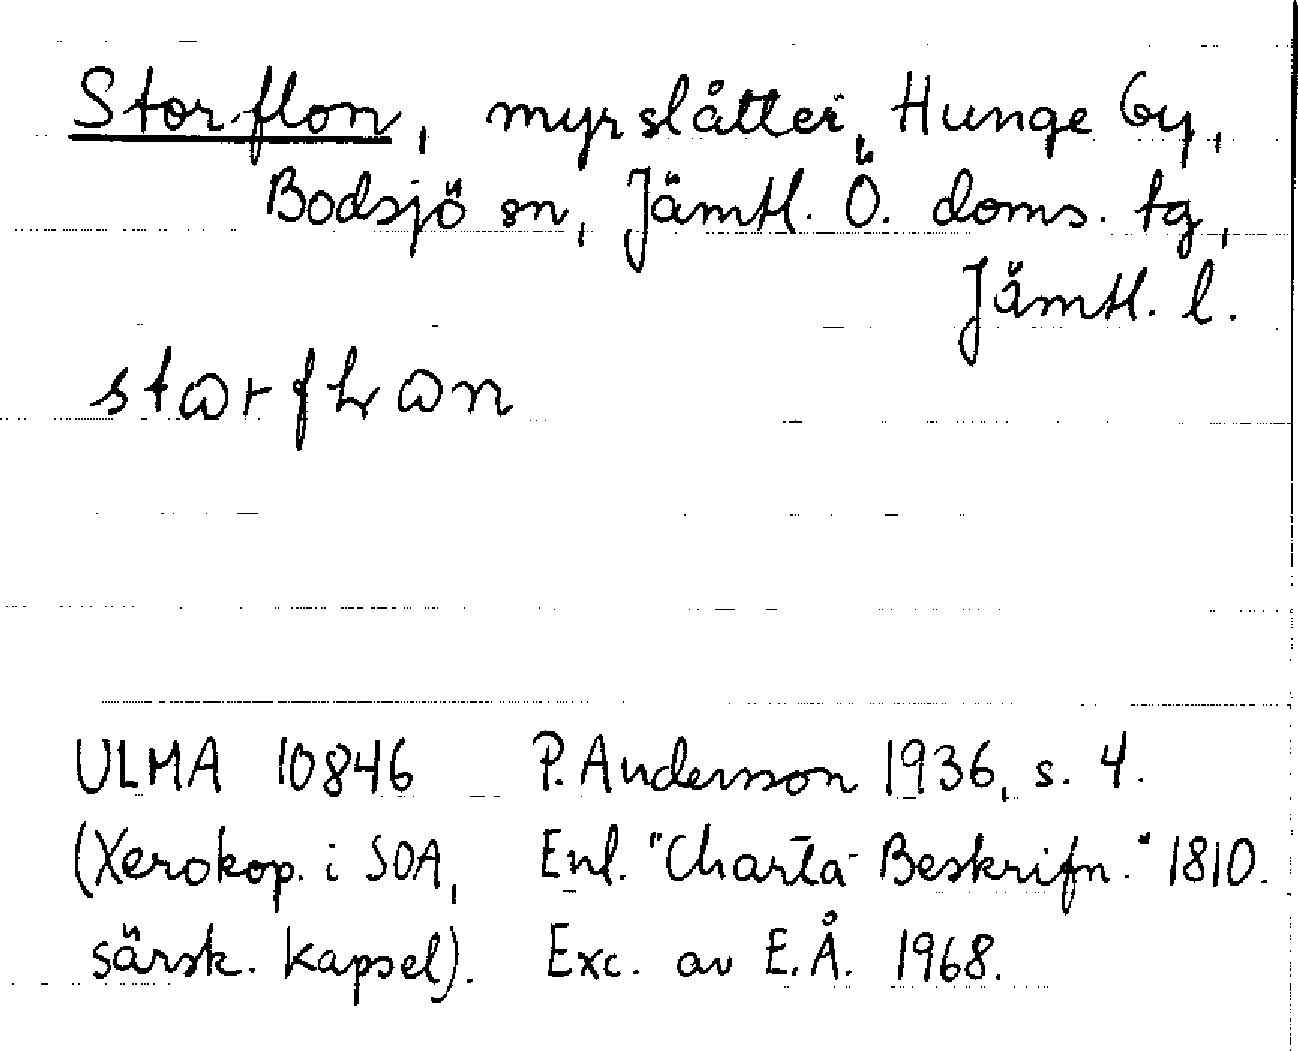 Storflon, myrslåtter, Hunge by,
Bodsjö sn, Jämtl. Ö. doms. tg,
Jämtl. l.
ULMA 10846 P. Andersson 1936, s. 4.
(Xerokop. i SOA, Enl. "Charta Beskrifn." 1810.
särsk. kapsel). Exc. av E.Å. 1968.